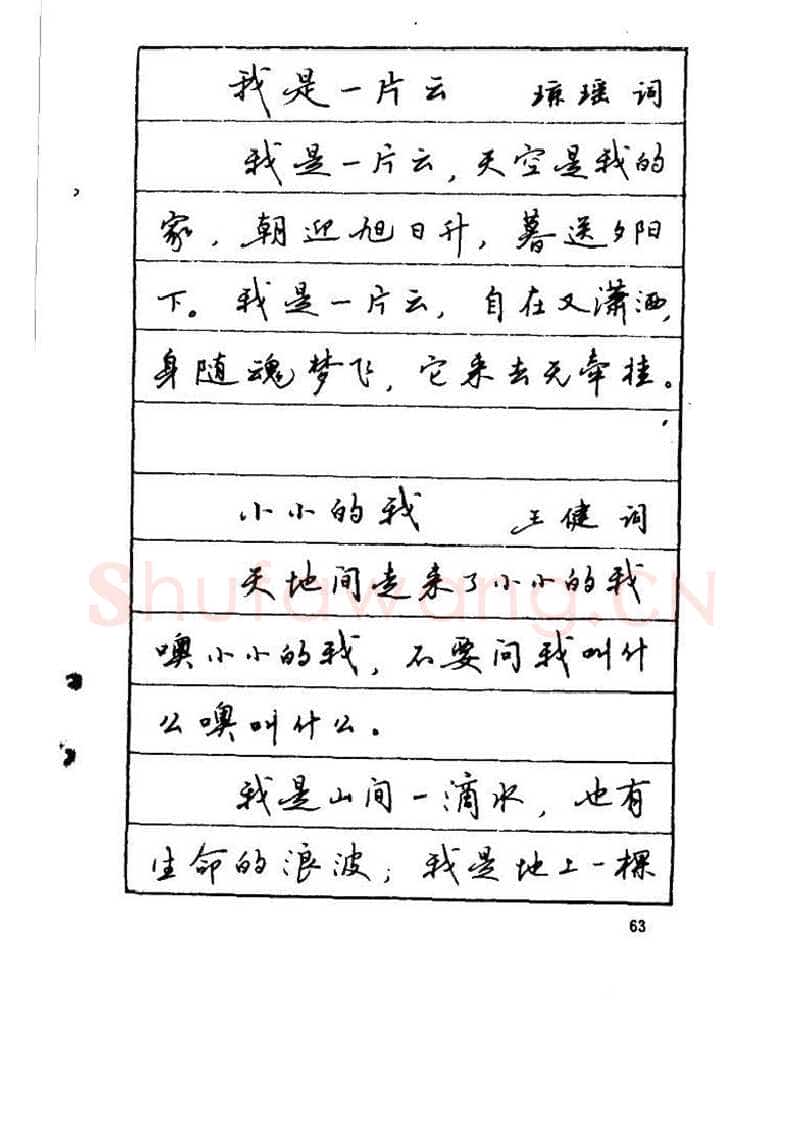 我是一片云 琼瑶词
我是一片云,天空是我的
家,朝迎旭日升,暮送夕阳
下。我是一片云,自在又潇洒,
身随魂梦飞,它来去无牵挂。
小小的我 王健词
天地间走来了小小的我
噢小小的我,不要问我叫什
么噢叫什么。
我是山间一滴水,也有
生命的浪波;我是地上一棵
63
Shufawang.CN